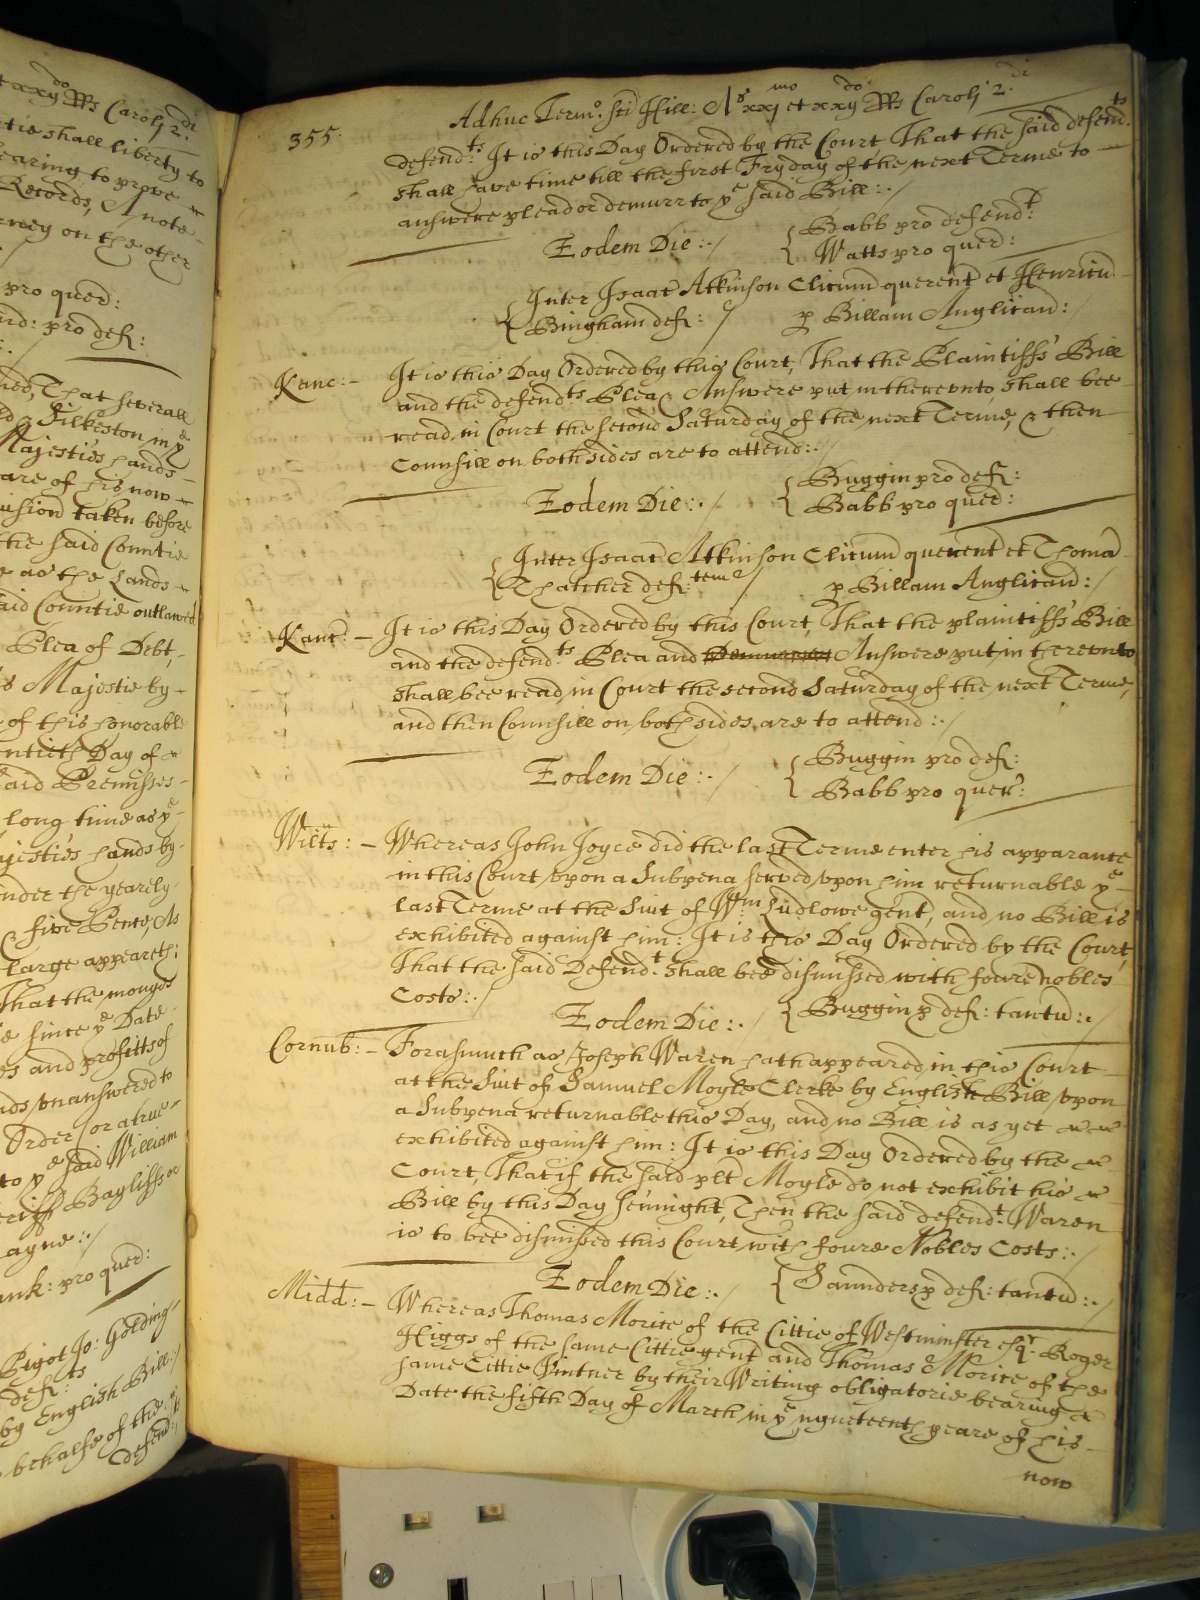 t xxij do Rs Caroli 2. di
tie shall liberty to
earing to prove
Records, A note
rney on the other
pro quer:
nd: pro def:
ned, That severall
Ilkeston in ye
Majesties hands
are of his now
uision taken before
the said Countie
e as the Lands
aid Countie outlawed
Plea of Debt,
s Majestie by
of this honorable
ntieth Day of
aid Premisses
long time as ye
jesties hands by
nder the yearely
& five Pence, As
large appeareth;
That the monyes
e since ye Date
es and profitts of
nds vnanswered to
Order (or a true
to ye said William
eriff Bayliffs or
ayne:./
nk: pro quer:
Pigot Jo: Golding
def:ts
by English Bill:/
behalfe of the
defend:ts
355.
Adhuc Termo: sti Hill: Ao xxjmo et xxijdo Rs Caroli 2.di
defend:ts It is this Day Ordered by the Court That the said defend:ts
shall have time till the first Fryday of the next Terme to
answere plead or demurr to ye said Bill:./
Eodem Die:./ { Babb pro defend:t
Watts pro quer:
{ Inter Isaac Atkinson Clicum querent et Henricum
Bingham def:/ p Billam Anglican:/
Kanc:- It is this Day Ordered by this Court, That the Plaintiffs Bill
and the defend:ts Plea & Answere put in therevnto shall bee
read in Court the second Saturday of the next Terme, & then
Counsill on both sides are to attend:./
Eodem Die:./ { Buggin pro def:
Babb pro quer:
{ Inter Isaac Atkinson Clicum querent et Thoma
Thatcher def:tem / p Billam Anglican:/
Kanc: - It is this Day Ordered by this Court, That the plaintiffs Bill
and the defend:ts Plea and Demurrer Answere put in therevnto
shall bee read, in Court the second Saturday of the next Terme,
and then Counsill on both sides are to attend:./
Eodem Die:./ { Buggin pro def:
Babb pro quer:
Wilts: - Whereas John Joyce did the last Terme enter his apparance
in this Court vpon a Subpena served vpon him returnable ye
last Terme at the Suit of Wm: Ludlowe gent, and no Bill is
exhibited against him: It is this Day Ordered by the Court,
That the said Defend:t shall bee dismissed with foure nobles
Costs:./
Eodem Die:./ { Buggin p def: tantum:./
Cornub: - Forasmuch as Joseph Waren hath appeared in this Court
at the Suit of Samuel Moyle Clerke by English Bill vpon
a Subpena returnable this Day, and no Bill is as yet
exhibited against him: It is this Day Ordered by the
Court, That if the said plt Moyle do not exhibit his
Bill by this Day Sennight, Then the said defend:t Waren
is to bee dismissed this Court with foure Nobles Costs:./
Eodem Die:./ { Saunders p def: tantum:./
Midd: - Whereas Thomas Morice of the Cittie of Westminster esqr: Roger
Higgs of the same Cittie gent and Thomas Morice of the
same Cittie Vintner by their Writing obligatorie bearing
Date the fifth Day of March in ye nyneteenth yeare of his
now